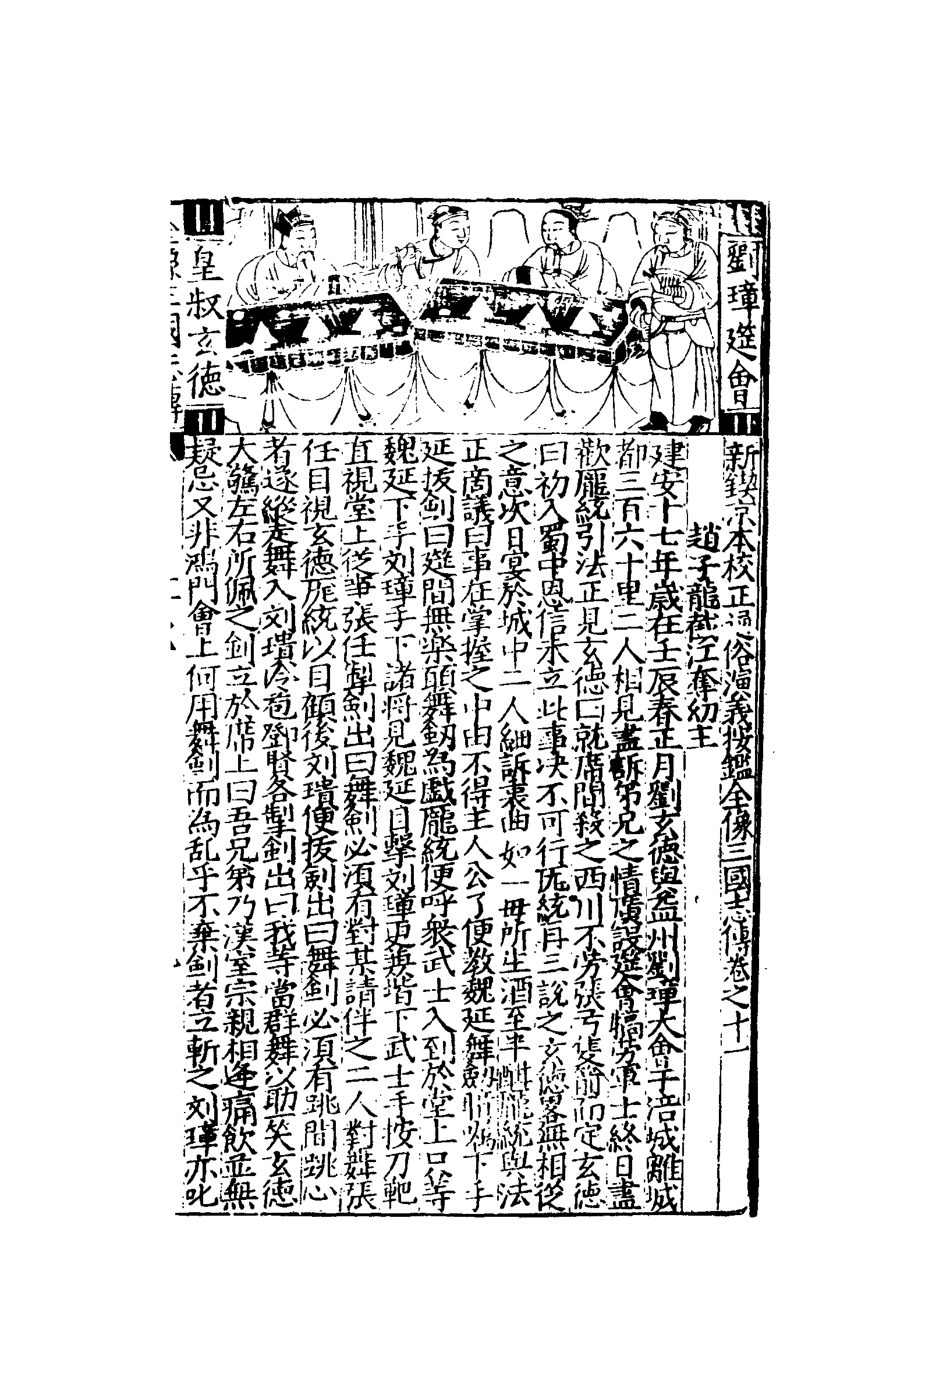 劉璋筵會
皇叔玄德
新鍥京本校正通俗演義按鑑全像三國志傳卷之十一
趙子龍截江奪幼主
建安十七年歲在壬辰春正月劉玄德與益州劉璋大會于涪城離城
都三百六十里二人相見盡訴弟兄之情廣設筵會犒勞軍士終日盡
歡龐統引法正見玄德曰就席間殺之西川不勞張弓隻箭而定玄德
曰初入蜀中恩信未立此事决不可行龐統再三說之玄德畧無相從
之意次日宴於城中二人細訴衷曲如一母所生酒至半酣龐統與法
正商議曰事在掌握之中由不得主人公了便教魏延舞劍 下手
延拔劍曰筵間無樂願舞劍為戯龐統便呼衆武士入到於堂上只等
魏延下手刘璋手下諸將見魏延目擊刘璋更兼堦下武士手按刀靶
直視堂上從事張任掣劍出曰舞劍必須有對某請伴之二人對舞張
任目視玄德龐統以目顧後刘璝便拔劍出曰舞劍必須有跳間跳心
者遂縱走舞入刘璝冷苞鄧賢各掣劍出曰我等當群舞以助一笑玄德
大驚左右所佩之劍立於席上曰吾兄弟乃漢室宗親相逢痛飲並無
疑忌又非鴻門會上何用舞劍而為乱乎不棄劍者立斬之刘璋亦叱
全像三國志傳